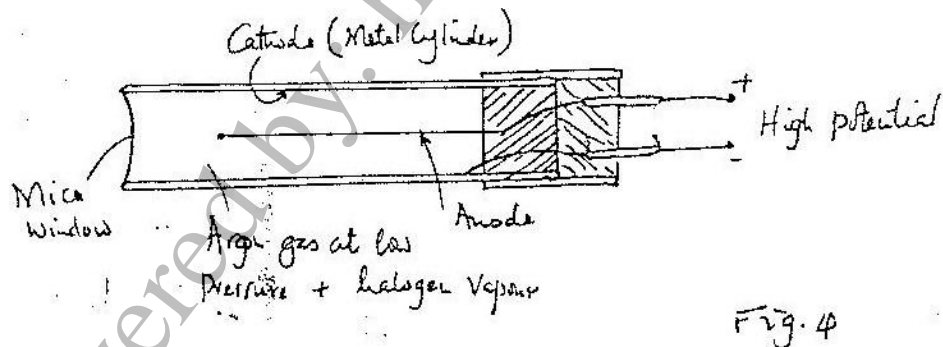 Cathode (Metal Cylinder)
+
High potential
-
Mica
window
Anode
Argon gas at low
Pressure + halogen Vapour
Fig. 4
ered by: